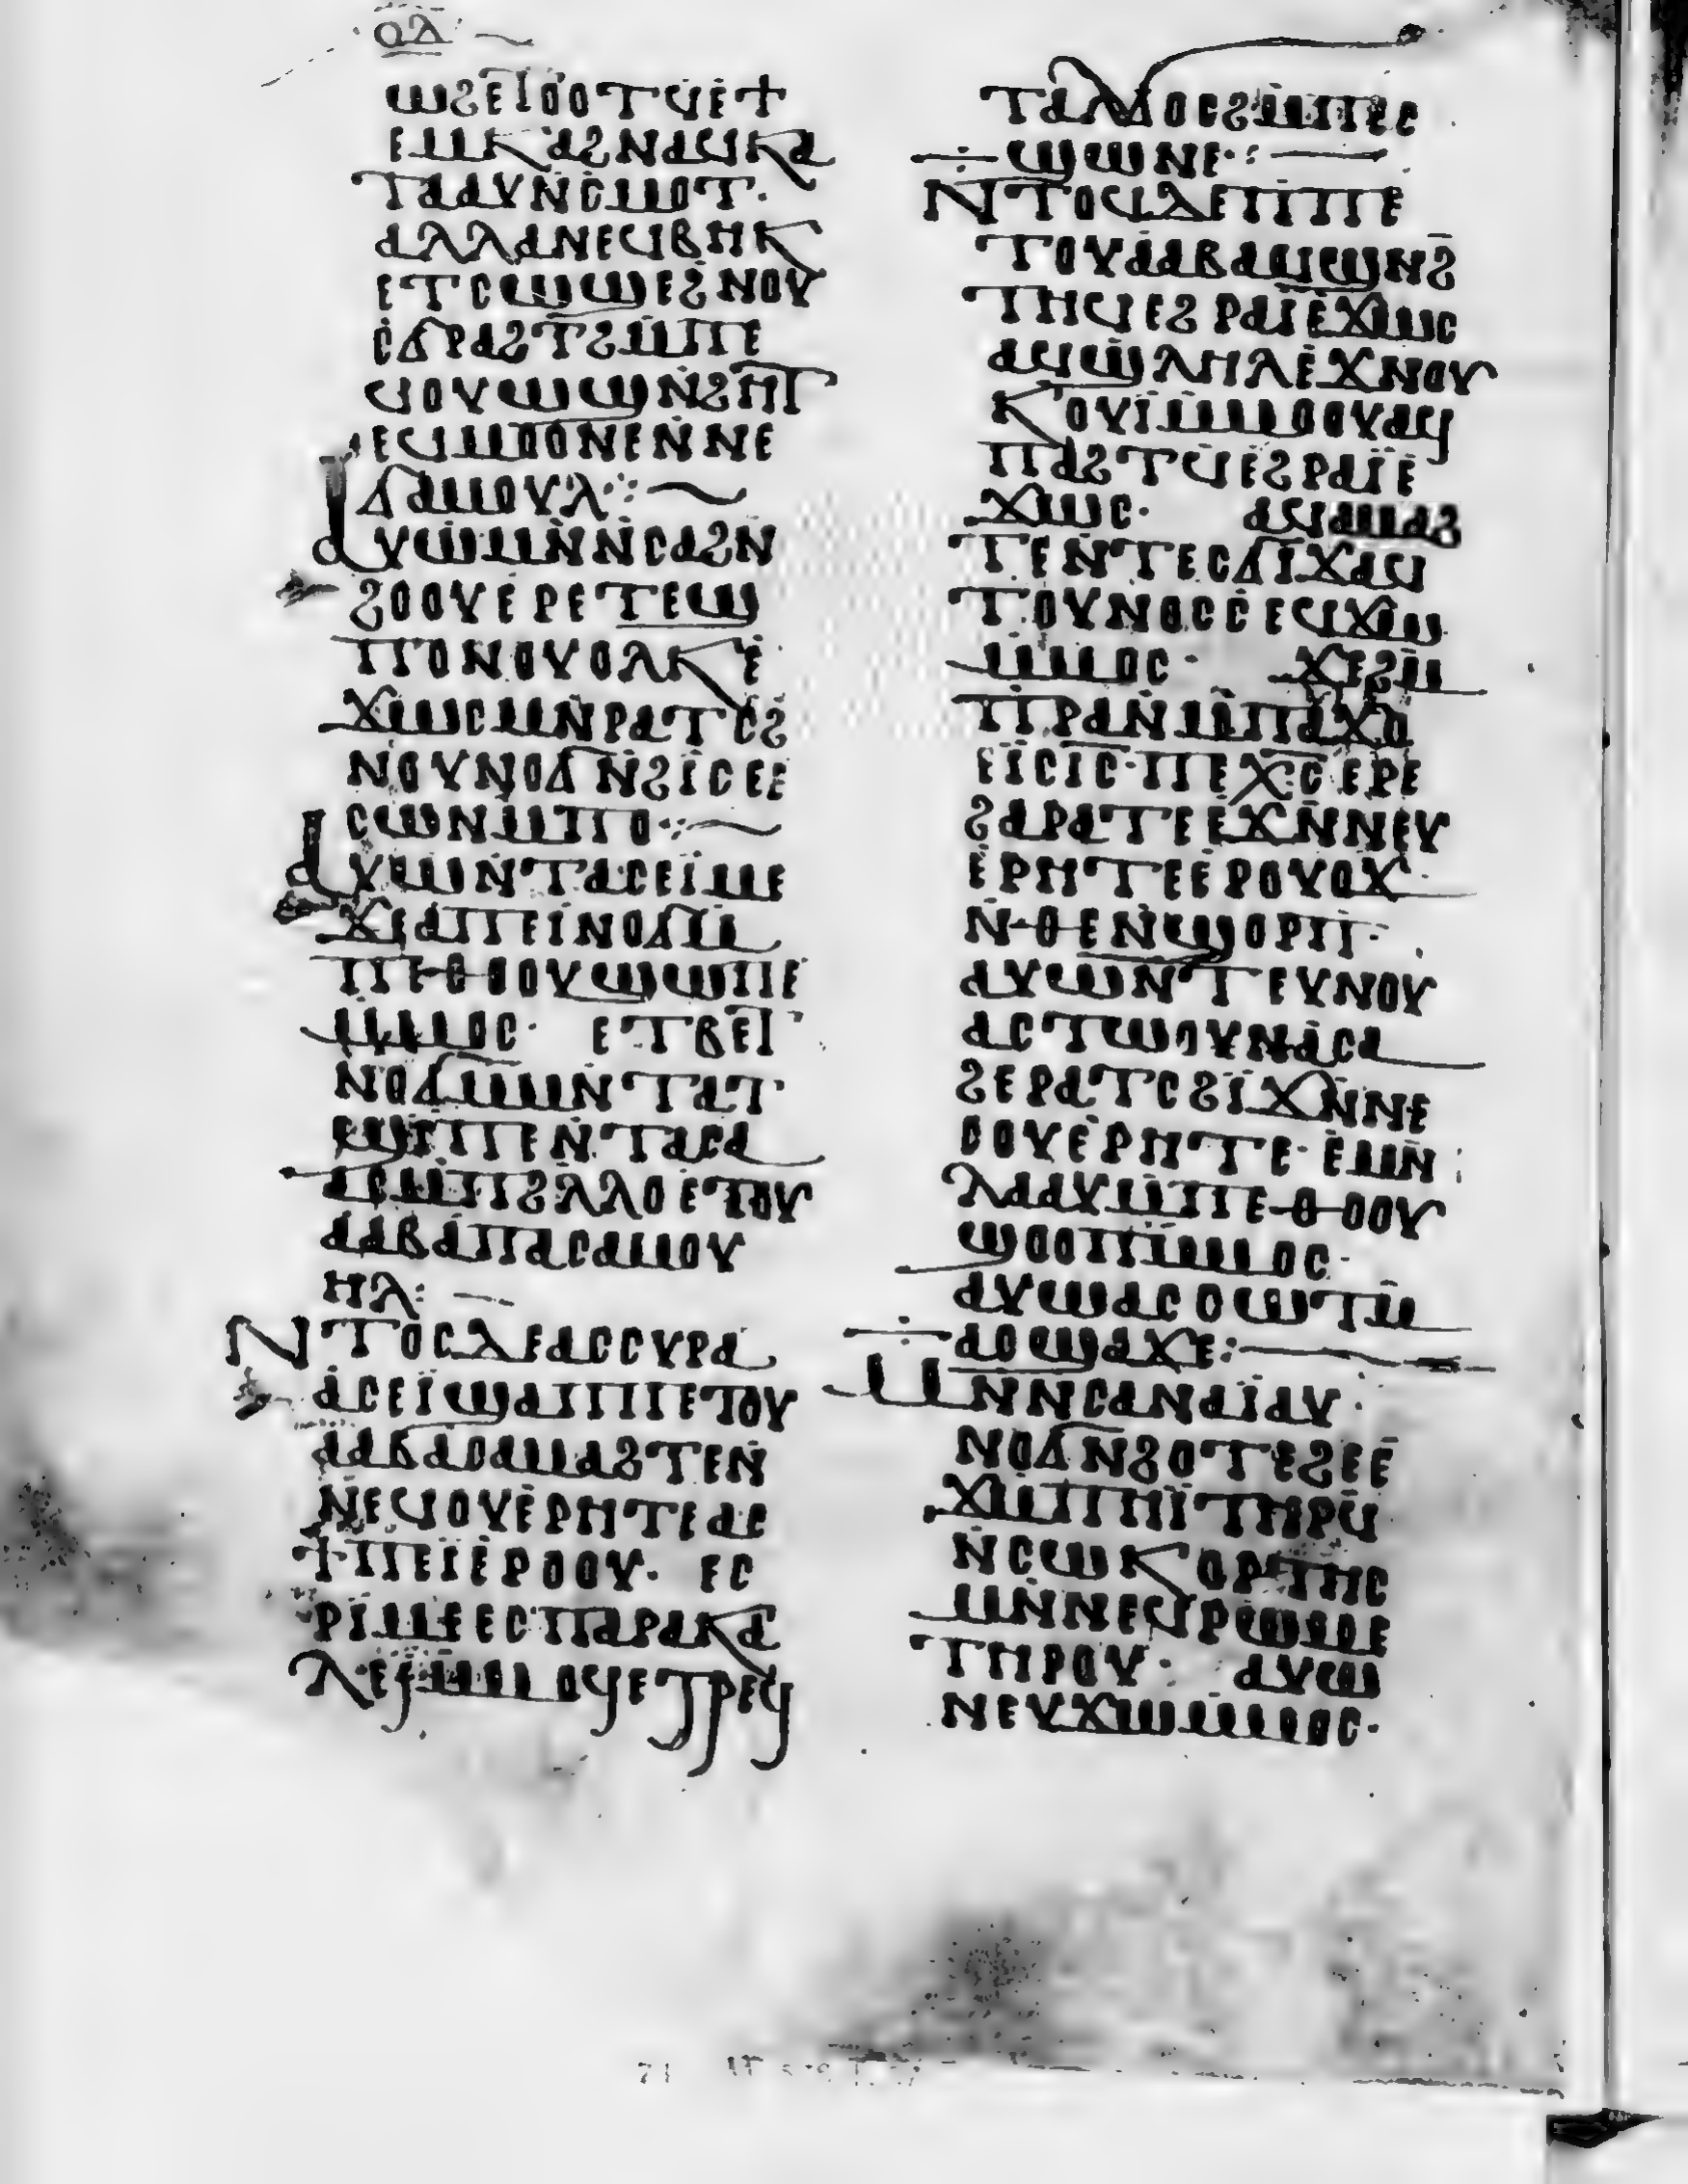 ⲟⲁ
ⲱϩⲉⲓⲟⲟⲧϥⲉϯ
ⲉⲙⲕⲁϩⲛⲁϥⲕⲁ
ⲧⲁⲁⲩⲛⲥⲙⲟⲧ·
ⲁⲗⲗⲁⲛⲉϥⲃⲏⲕ
ⲉⲧⲥⲱϣⲉϩⲛⲟⲩ
ϭⲣⲁϩⲧϩⲙⲡⲉ
ϥⲟⲩⲱϣⲛϩⲏⲧ
ⲉϥⲙⲟⲟⲛⲉⲛⲛⲉ
ϭⲁⲙⲟⲩⲗ⁘
ⲁⲩⲱⲙⲛⲛⲥⲁϩⲛ
ϩⲟⲟⲩⲉⲣⲉⲧⲉϣ
ⲡⲟⲛⲟⲩⲟⲗⲕⲉ
ϫⲱⲥⲙⲛⲣⲁⲧⲥϩ
ⲛⲟⲩⲛⲟϭⲛϩⲓⲥⲉⲉ
ⲥⲱⲛⲙⲡⲟ⁘
ⲁⲩⲱⲛⲧⲁⲥⲉⲓⲙⲉ
ϫⲉⲁⲡⲉⲓⲛⲟϭⲙ
ⲡⲉⲑⲟⲟⲩϣⲱⲡⲉ
ⲙⲙⲟⲥ· ⲉⲧⲃⲉⲓ
ⲛⲟϭⲙⲙⲛⲧⲁⲧ
ϣⲓⲡⲉⲛⲧⲁⲥⲁ
ⲁⲥⲙⲡϩⲗⲗⲟⲉⲧⲟⲩ
ⲁⲁⲃⲁⲡⲁⲥⲁⲙⲟⲩ
ⲏⲗ:
ⲛⲧⲟⲥⲇⲉⲁⲥⲥⲩⲣⲁ
ⲁⲥⲉⲓϣⲁⲡⲡⲉⲧⲟⲩ
ⲁⲁⲃⲁⲥⲁⲙⲁϩⲧⲉⲛ
ⲛⲉϥⲟⲩⲉⲣⲏⲧⲉⲁⲥ
ϯⲡⲉⲓⲉⲣⲟⲟⲩ· ⲉⲥ
ⲣⲓⲙⲉⲉⲥⲡⲁⲣⲁⲕⲁ
ⲗⲉⲓⲙⲙⲟϥⲉⲧⲣⲉϥ
ⲧⲁⲗϭⲟⲥϩⲙⲡⲉⲥ
ϣⲱⲛⲉ⁖
ⲛⲧⲟϥⲇⲉⲡⲡⲉ
ⲧⲟⲩⲁⲁⲃⲁϥϣⲛϩ
ⲧⲏϥⲉϩⲣⲁⲓⲉϫⲱⲥ
ⲁϥϣⲗⲏⲗⲉϫⲛⲟⲩ
ⲕⲟⲩⲓⲙⲙⲟⲟⲩⲁϥ
ⲡⲁϩⲧϥⲉϩⲣⲁⲓⲉ
ϫⲱⲥ· ⲁϥⲁⲙⲁϩ
ⲧⲉⲛⲧⲉⲥϭⲓϫⲁϥ
ⲧⲟⲩⲛⲟⲥⲥⲉϥϫⲱ
ⲙⲙⲟⲥ· ϫⲉϩⲙ
ⲡⲣⲁⲛⲙⲡⲁϫⲟ
ⲉⲓⲥⲓⲥ·ⲡⲉⲭⲥⲉⲣⲉ
ϩⲁⲣⲁⲧⲉⲉϫⲛⲛⲉⲩ
ⲉⲣⲏⲧⲉⲉⲣⲟⲩⲟϫ
ⲛⲑⲉⲛϣⲟⲣⲡ·
ⲁⲩⲱⲛⲧⲉⲩⲛⲟⲩ
ⲁⲥⲧⲱⲟⲩⲛⲁⲥⲁ
ϩⲉⲣⲁⲧⲥϩⲓϫⲛⲛⲉ
ⲥⲟⲩⲉⲣⲏⲧⲉ·ⲉⲙⲛ
ⲗⲁⲁⲩⲙⲡⲉⲑⲟⲟⲩ
ϣⲟⲟⲡⲙⲙⲟⲥ·
ⲁⲩⲱⲁⲥⲟⲩⲱⲧⲙ
ⲁⲥϣⲁϫⲉ:
ⲙⲛⲛⲥⲁⲛⲁⲓⲁⲩ
ⲛⲟϭⲛϩⲟⲧⲉϩⲉⲉ
ϫⲙⲡⲏⲓⲧⲏⲣϥ
ⲛⲥⲱⲕⲟⲣⲧⲏⲥ
ⲙⲛⲛⲉϥⲣⲱⲙⲉ
ⲧⲏⲣⲟⲩ: ⲁⲩⲱ
ⲛⲉⲩϫⲱⲙⲙⲟⲥ·